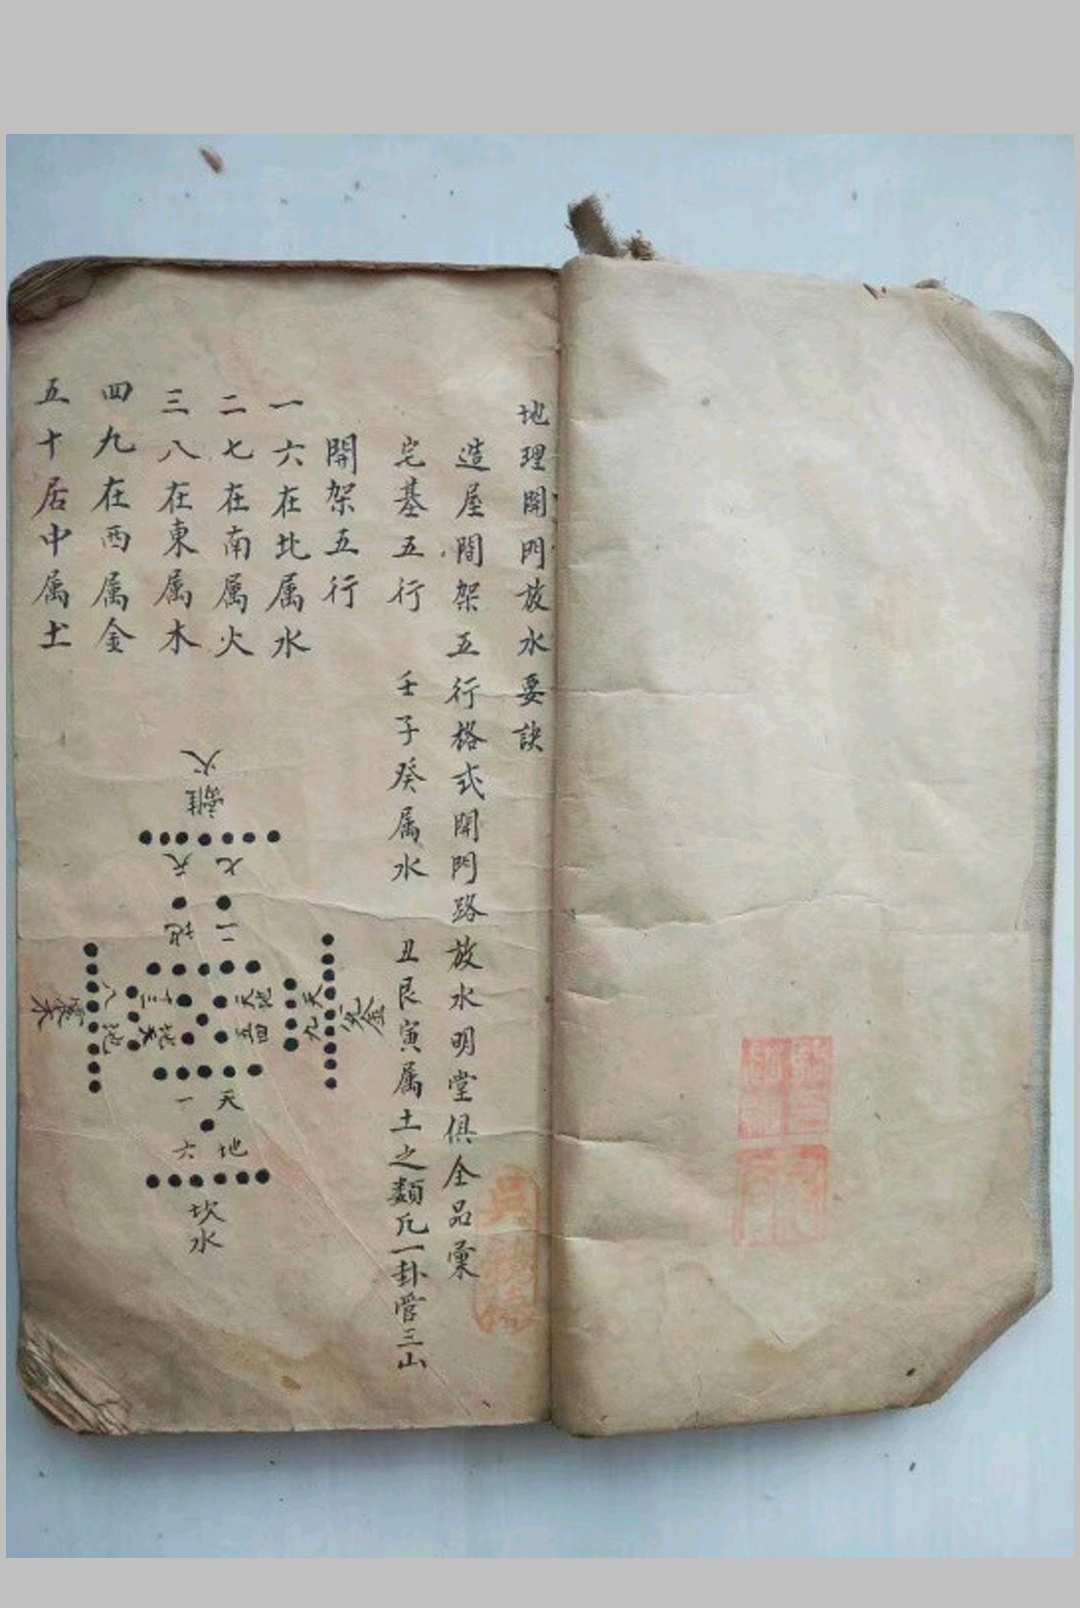 地理開門放水要訣
造屋間架五行格式開門路放水明堂俱全品彙
宅基五行　壬子癸属水　丑艮寅属土之類凡一卦管三山
開架五行
一六在北属水
二七在南属火
三八在東属木
四九在西属金
五十居中属土
離火
七天
二地
八地
三天
十地
天五
地四
天九
兌金
天一
地六
坎水